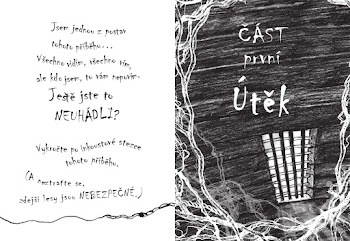 Jsem jednou z postav
tohoto příběhu...
Všechno vidím, všechno vím,
ale kdo jsem, to vám nepovím.
Ještě jste to
NEUHÁDLI?
Vykročte po inkoustové stezce
tohoto příběhu.
(A neztraťte se,
zdejší lesy jsou NEBEZPEČNÉ.)
ČÁST
první
Útěk